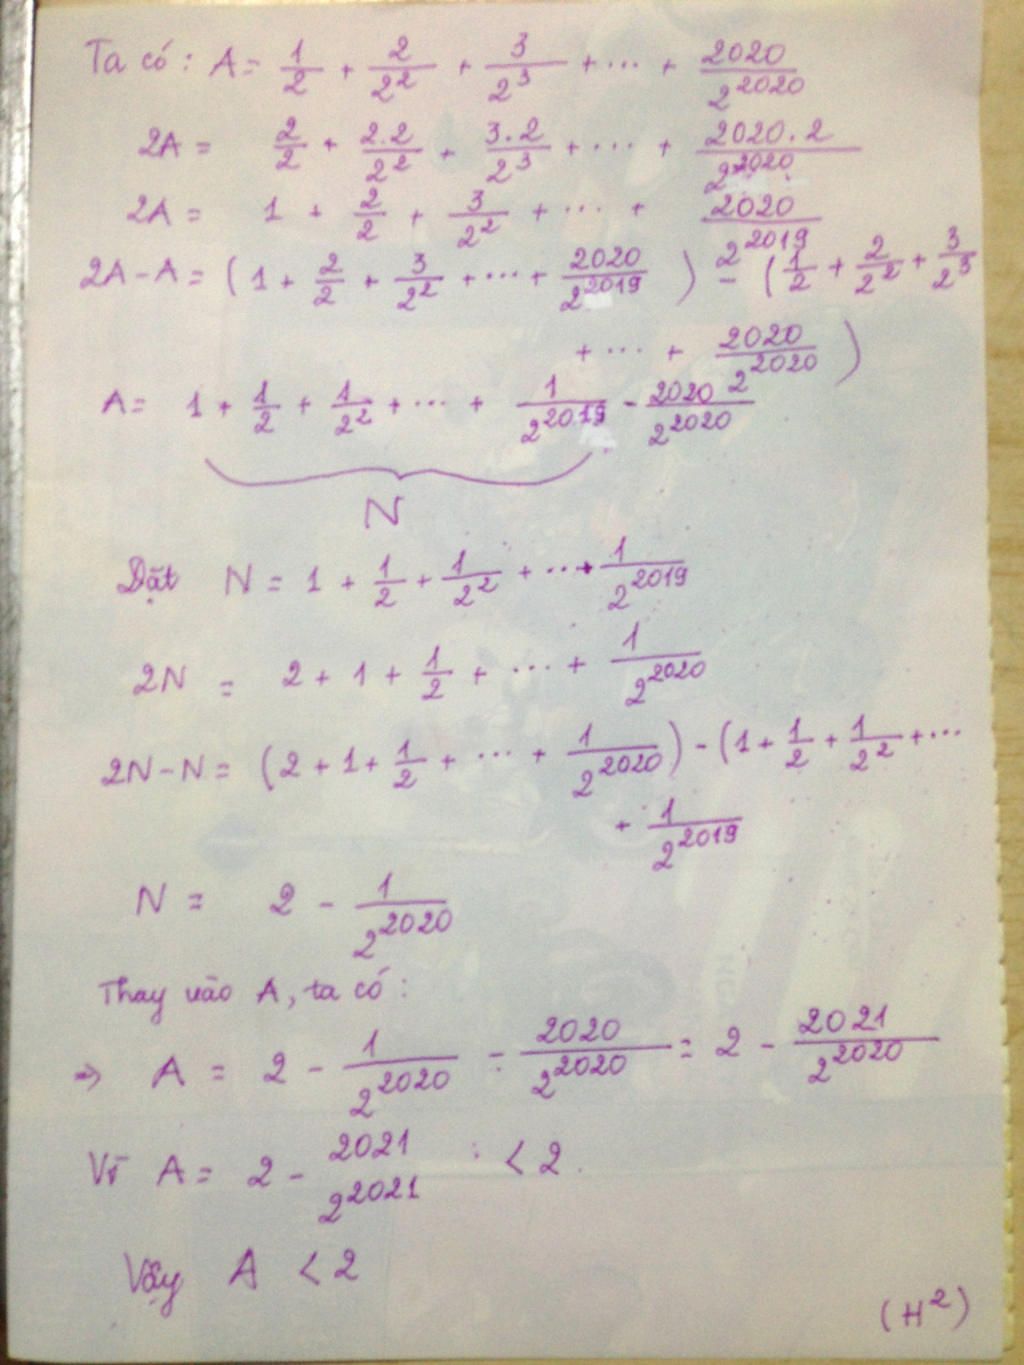 Ta có: A = 1/2 + 2/2^2 + 3/2^3 + ... + 2020/2^2020
2A = 2/2 + 2.2/2^2 + 3.2/2^3 + ... + 2020.2/2^2020
2A = 1 + 2/2 + 3/2^2 + ... + 2020/2^2019
2A - A = (1 + 2/2 + 3/2^2 + ... + 2020/2^2019) - (1/2 + 2/2^2 + 3/2^3
+ ... + 2020/2^2020)
A = 1 + 1/2 + 1/2^2 + ... + 1/2^2019 - 2020/2^2020
N
Đặt N = 1 + 1/2 + 1/2^2 + ... + 1/2^2019
2N = 2 + 1 + 1/2 + ... + 1/2^2020
2N - N = (2 + 1 + 1/2 + ... + 1/2^2020) - (1 + 1/2 + 1/2^2 + ...
+ 1/2^2019)
N = 2 - 1/2^2020
Thay vào A, ta có:
=> A = 2 - 1/2^2020 - 2020/2^2020 = 2 - 2021/2^2020
Vì A = 2 - 2021/2^2021 < 2.
Vậy A < 2
(H^2)